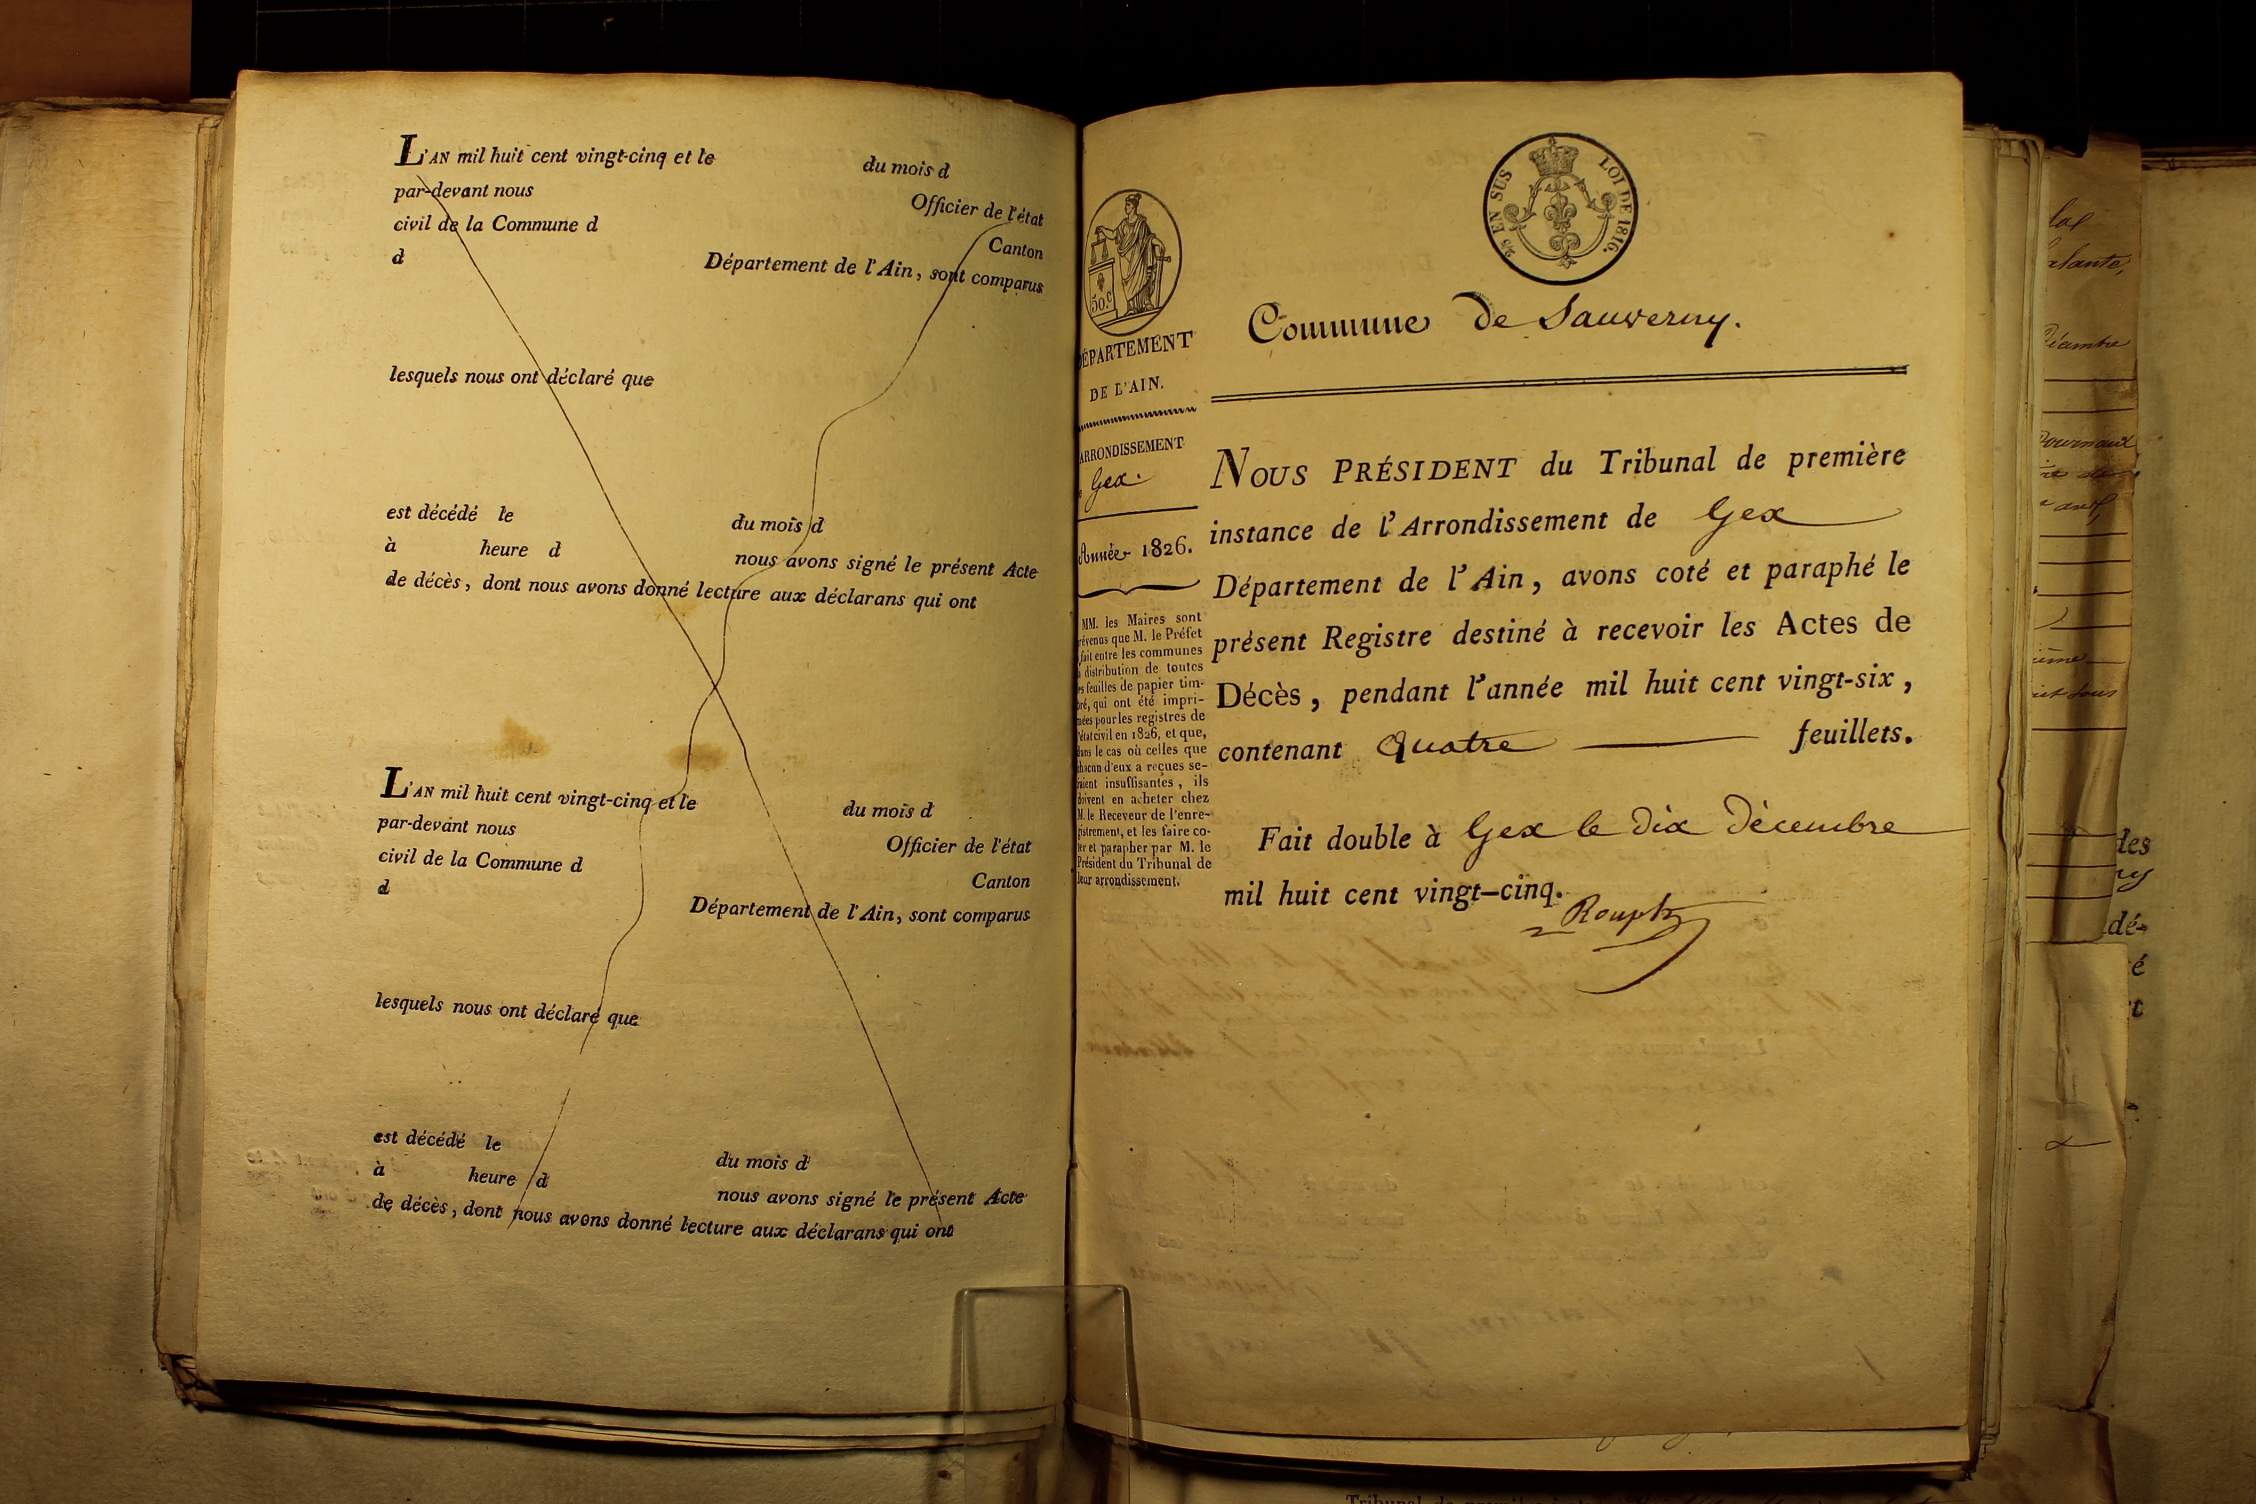 L'AN mil huit cent vingt-cinq et le du mois d
par-devant nous Officier de l'état
civil de la Commune d Canton
d Département de l'Ain, sont comparus
lesquels nous ont déclaré que
est décédé le du mois d
à heure d nous avons signé le présent Acte
de décès, dont nous avons donné lecture aux déclarans qui ont
L'AN mil huit cent vingt-cinq et le du mois d
par-devant nous Officier de l'état
civil de la Commune d Canton
d Département de l'Ain, sont comparus
lesquels nous ont déclaré que
est décédé le du mois d
à heure d nous avons signé le présent Acte
de décès, dont nous avons donné lecture aux déclarans qui ont
EN SUS LOI DE 1816.
50.c
DÉPARTEMENT
DE L'AIN.
ARRONDISSEMENT
Gex.
Année 1826.
MM. les Maires sont
prévenus que M. le Préfet
fait entre les communes
distribution de toutes
feuilles de papier tim-
bré, qui ont été impri-
mées pour les registres de
l'état civil en 1826, et que,
dans le cas où celles que
chacun d'eux a reçues se-
raient insuffisantes, ils
doivent en acheter chez
M. le Receveur de l'enre-
gistrement, et les faire co-
ter et parapher par M. le
Président du Tribunal de
leur arrondissement.
Commune de Sauverny.
NOUS PRÉSIDENT du Tribunal de première
instance de l'Arrondissement de Gex
Département de l'Ain, avons coté et paraphé le
présent Registre destiné à recevoir les Actes de
Décès, pendant l'année mil huit cent vingt-six,
contenant Quatre feuillets.
Fait double à Gex le dix Décembre
mil huit cent vingt-cinq.
des
dé-